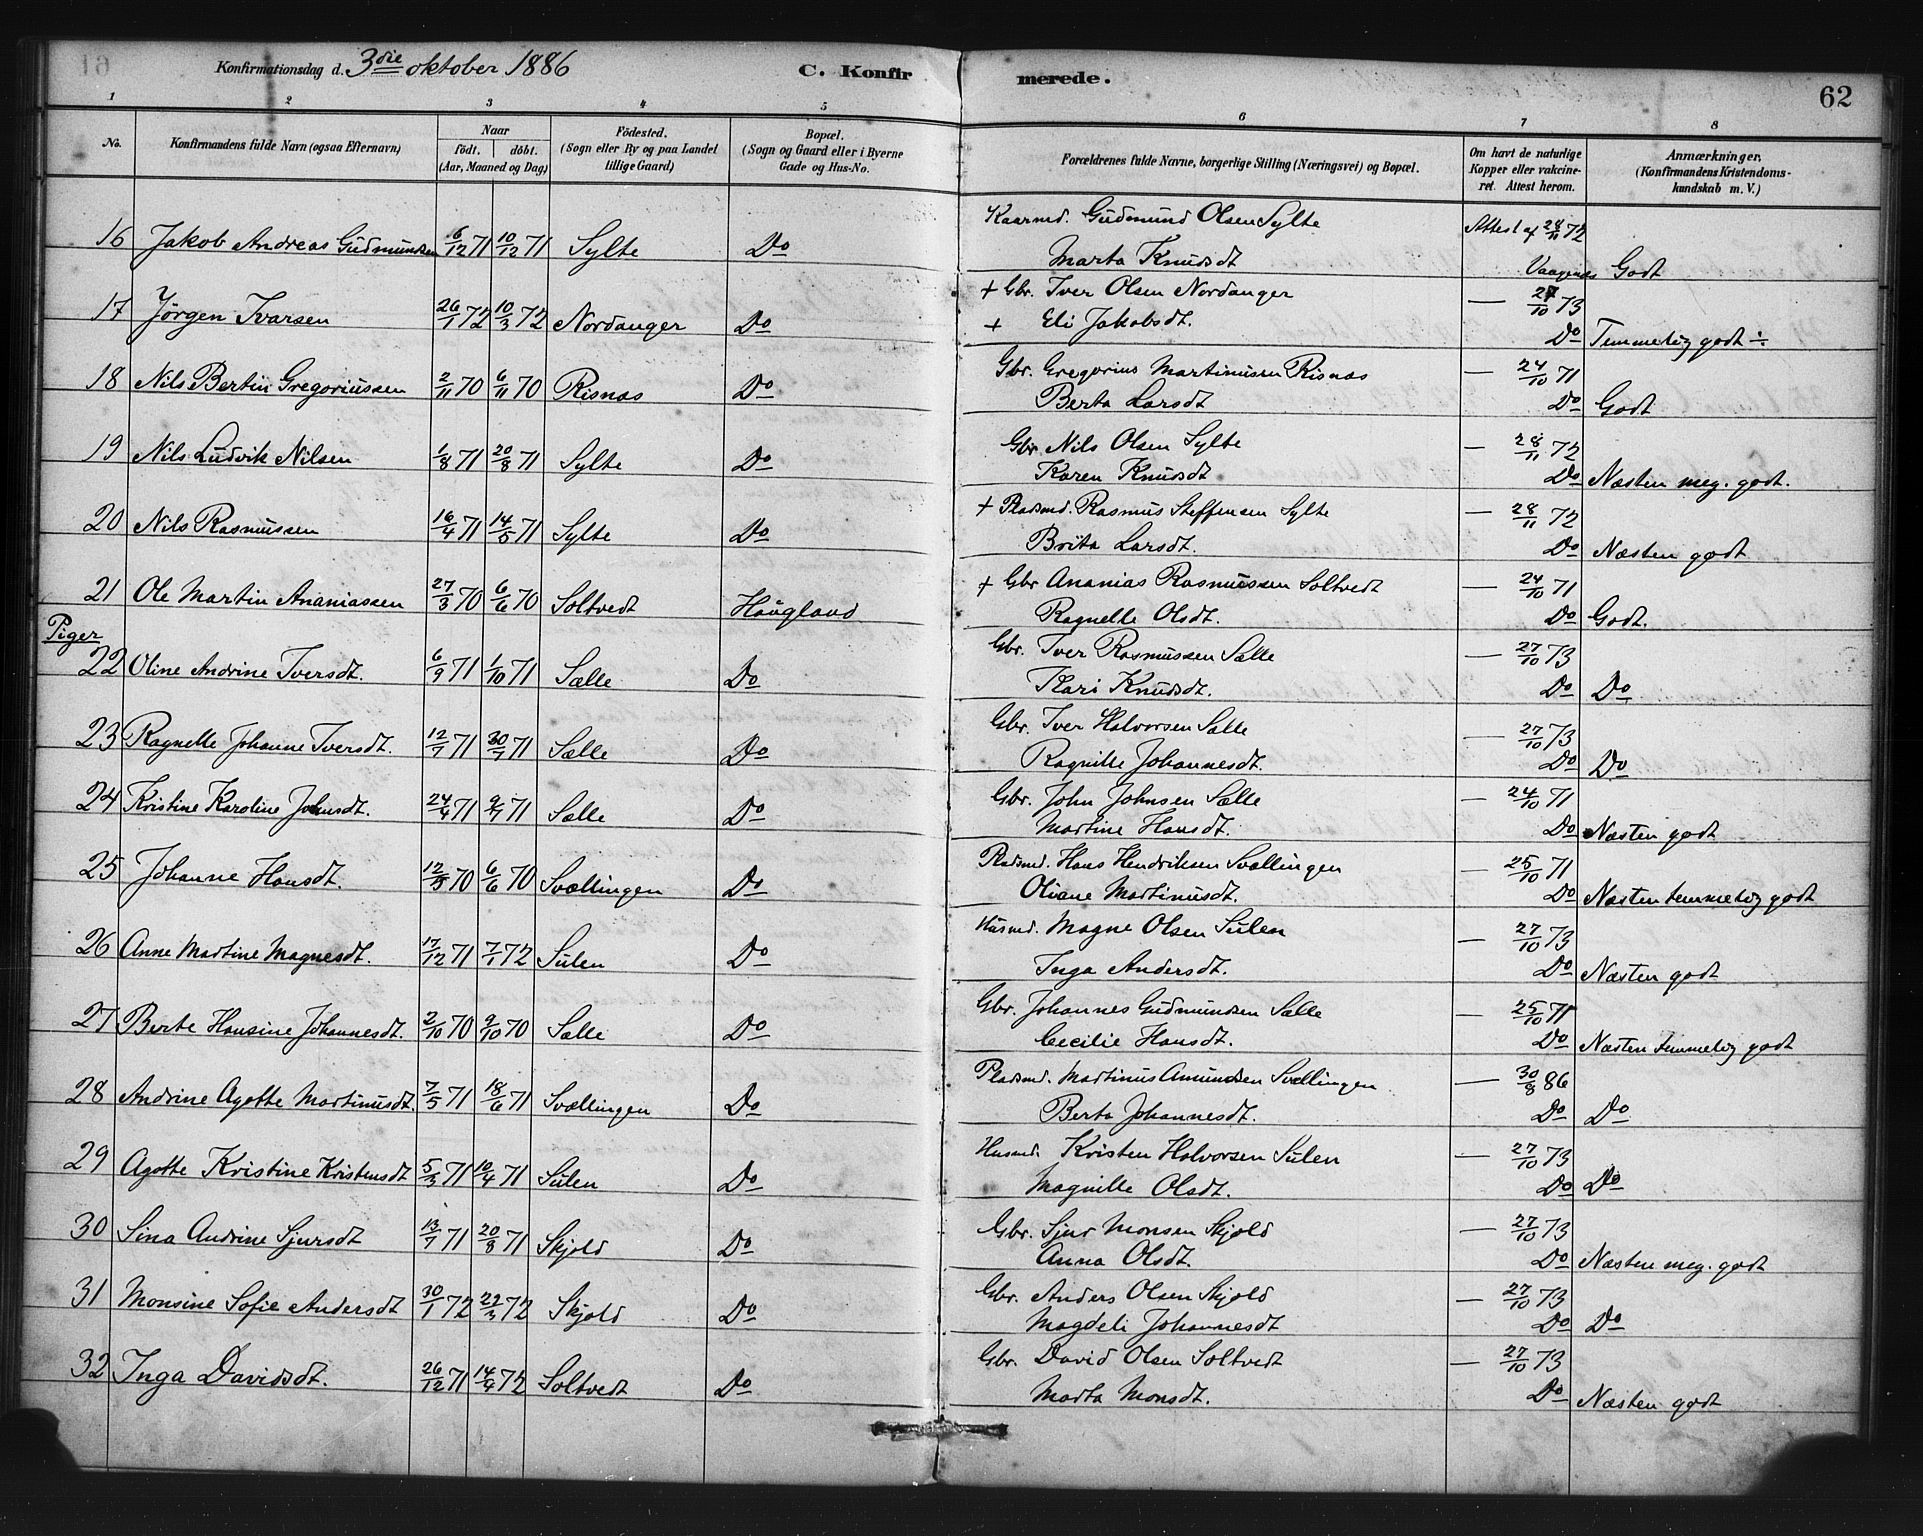 Konfirmationsdag d. 3die oktober 1886 C. Konfirmerede. 62
1 2 3 4 5 6 7 8
No. Konfirmandens fulde Navn (ogsaa Efternavn) Naar födt. döbt. (Aar, Maaned og Dag) Födested. (Sogn eller By og paa Landet tillige Gaard) Bopæl. (Sogn og Gaard eller i Byerne Gade og Hus-No. Forældrenes fulde Navne, borgerlige Stilling (Næringsvei) og Bopæl. Om havt de naturlige Kopper eller vakcineret. Attest herom. Anmærkninger, (Konfirmandens Kristendomskundskab m. V.)
16 Jakob Andreas Gudmundsen 6/12 71 10/12 71 Sylte Do Kaarmd. Gudmund Olsen Sylte Attest af 28/11 72
Marta Knudsdt Vaagenes Godt
17 Jörgen Ivarsen 26/1 72 10/3 72 Nordanger Do + Gbr. Iver Olsen Nordanger — 27/10 73
+ Eli Jakobsdt. Do Temmelig godt ÷
18 Nils Bertin Gregoriussen 2/11 70 6/11 70 Risnæs Do Gbr. Gregorius Martinussen Risnæs — 24/10 71
Berta Larsdt Do Godt
19 Nils Ludvik Nilsen 1/8 71 20/8 71 Sylte Do Gbr. Nils Olsen Sylte — 28/11 72
Karen Knudsdt Do Næsten meg. godt.
20 Nils Rasmussen 16/4 71 14/5 71 Sylte Do + Pladsmd. Rasmus Steffensen Sylte — 28/11 72
Brita Larsdt. Do Næsten godt
21 Ole Martin Ananiassen 27/3 70 6/6 70 Soltvedt Haugland + Gbr Ananias Rasmussen Soltvedt — 24/10 71
Ragnelle Olsdt. Do Godt.
Piger
22 Oline Andrine Iversdt. 6/9 71 1/10 71 Sælle Do Gbr. Iver Rasmussen Sælle — 27/10 73
Kari Knudsdt. Do Do
23 Ragnelle Johanne Iversdt. 12/7 71 30/7 71 Sælle Do Gbr. Iver Halvorsen Sælle — 27/10 73
Ragnille Johannesdt. Do Do
24 Kristine Karoline Johnsdt. 24/4 71 9/7 71 Sælle Do Gbr. John Johnsen Sælle — 24/10 71
Martine Hansdt. Do Næsten godt
25 Johanne Hansdt. 12/5 70 6/6 70 Svællingen Do Pladsmd. Hans Hendriksen Svællingen — 25/10 71
Oliane Martinusdt. Do Næsten temmelig godt
26 Anne Martine Magnesdt. 17/12 71 7/1 72 Sulen Do Husmd. Magne Olsen Sulen — 27/10 73
Inga Andersdt. Do Næsten godt
27 Berte Hansine Johannesdt. 2/10 70 9/10 70 Sælle Do Gbr. Johannes Gudmundsen Sælle — 25/10 71
Cecilie Hansdt. Do Næsten temmelig godt
28 Andrine Agotte Martinusdt. 7/5 71 18/6 71 Svællingen Do Pladsmd. Martinus Amundsen Svællingen — 30/8 86
Berta Johannesdt. Do Do
29 Agotte Kristine Kristensdt 5/3 71 10/4 71 Sulen Do Husmd. Kristen Halvorsen Sulen — 27/10 73
Magnille Olsdt. Do Do
30 Sina Andrine Sjursdt 13/7 71 20/8 71 Skjold Do Gbr. Sjur Monsen Skjold — 27/10 73
Anna Olsdt. Do Næsten meg. godt
31 Monsine Sofie Andersdt 30/1 72 22/3 72 Skjold Do Gbr. Anders Olsen Skjold — 27/10 73
Magdeli Johannesdt Do Do
32 Inga Davidsdt. 26/12 71 14/4 72 Soltvedt Do Gbr. David Olsen Soltvedt — 27/10 73
Marta Monsdt. Do Næsten godt